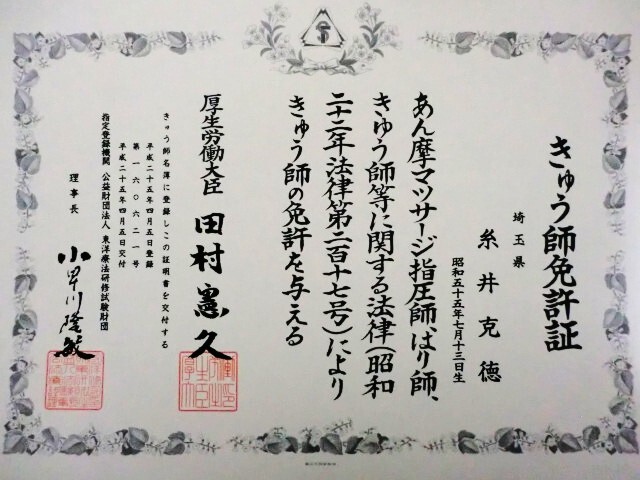 きゅう師免許証
埼玉県
糸井克徳
昭和五十五年七月十三日生
あん摩マツサージ指圧師、はり師、
きゆう師等に関する法律(昭和
二十二年法律第二百十七号)により
きゅう師の免許を与える
厚生労働大臣 田村憲久
きゅう師名簿に登録しこの証明書を交付する
平成二十五年四月五日登録
第一六〇六二一号
平成二十五年四月五日交付
指定登録機関 公益財団法人 東洋療法研修試験財団
理事長 小早川隆敏